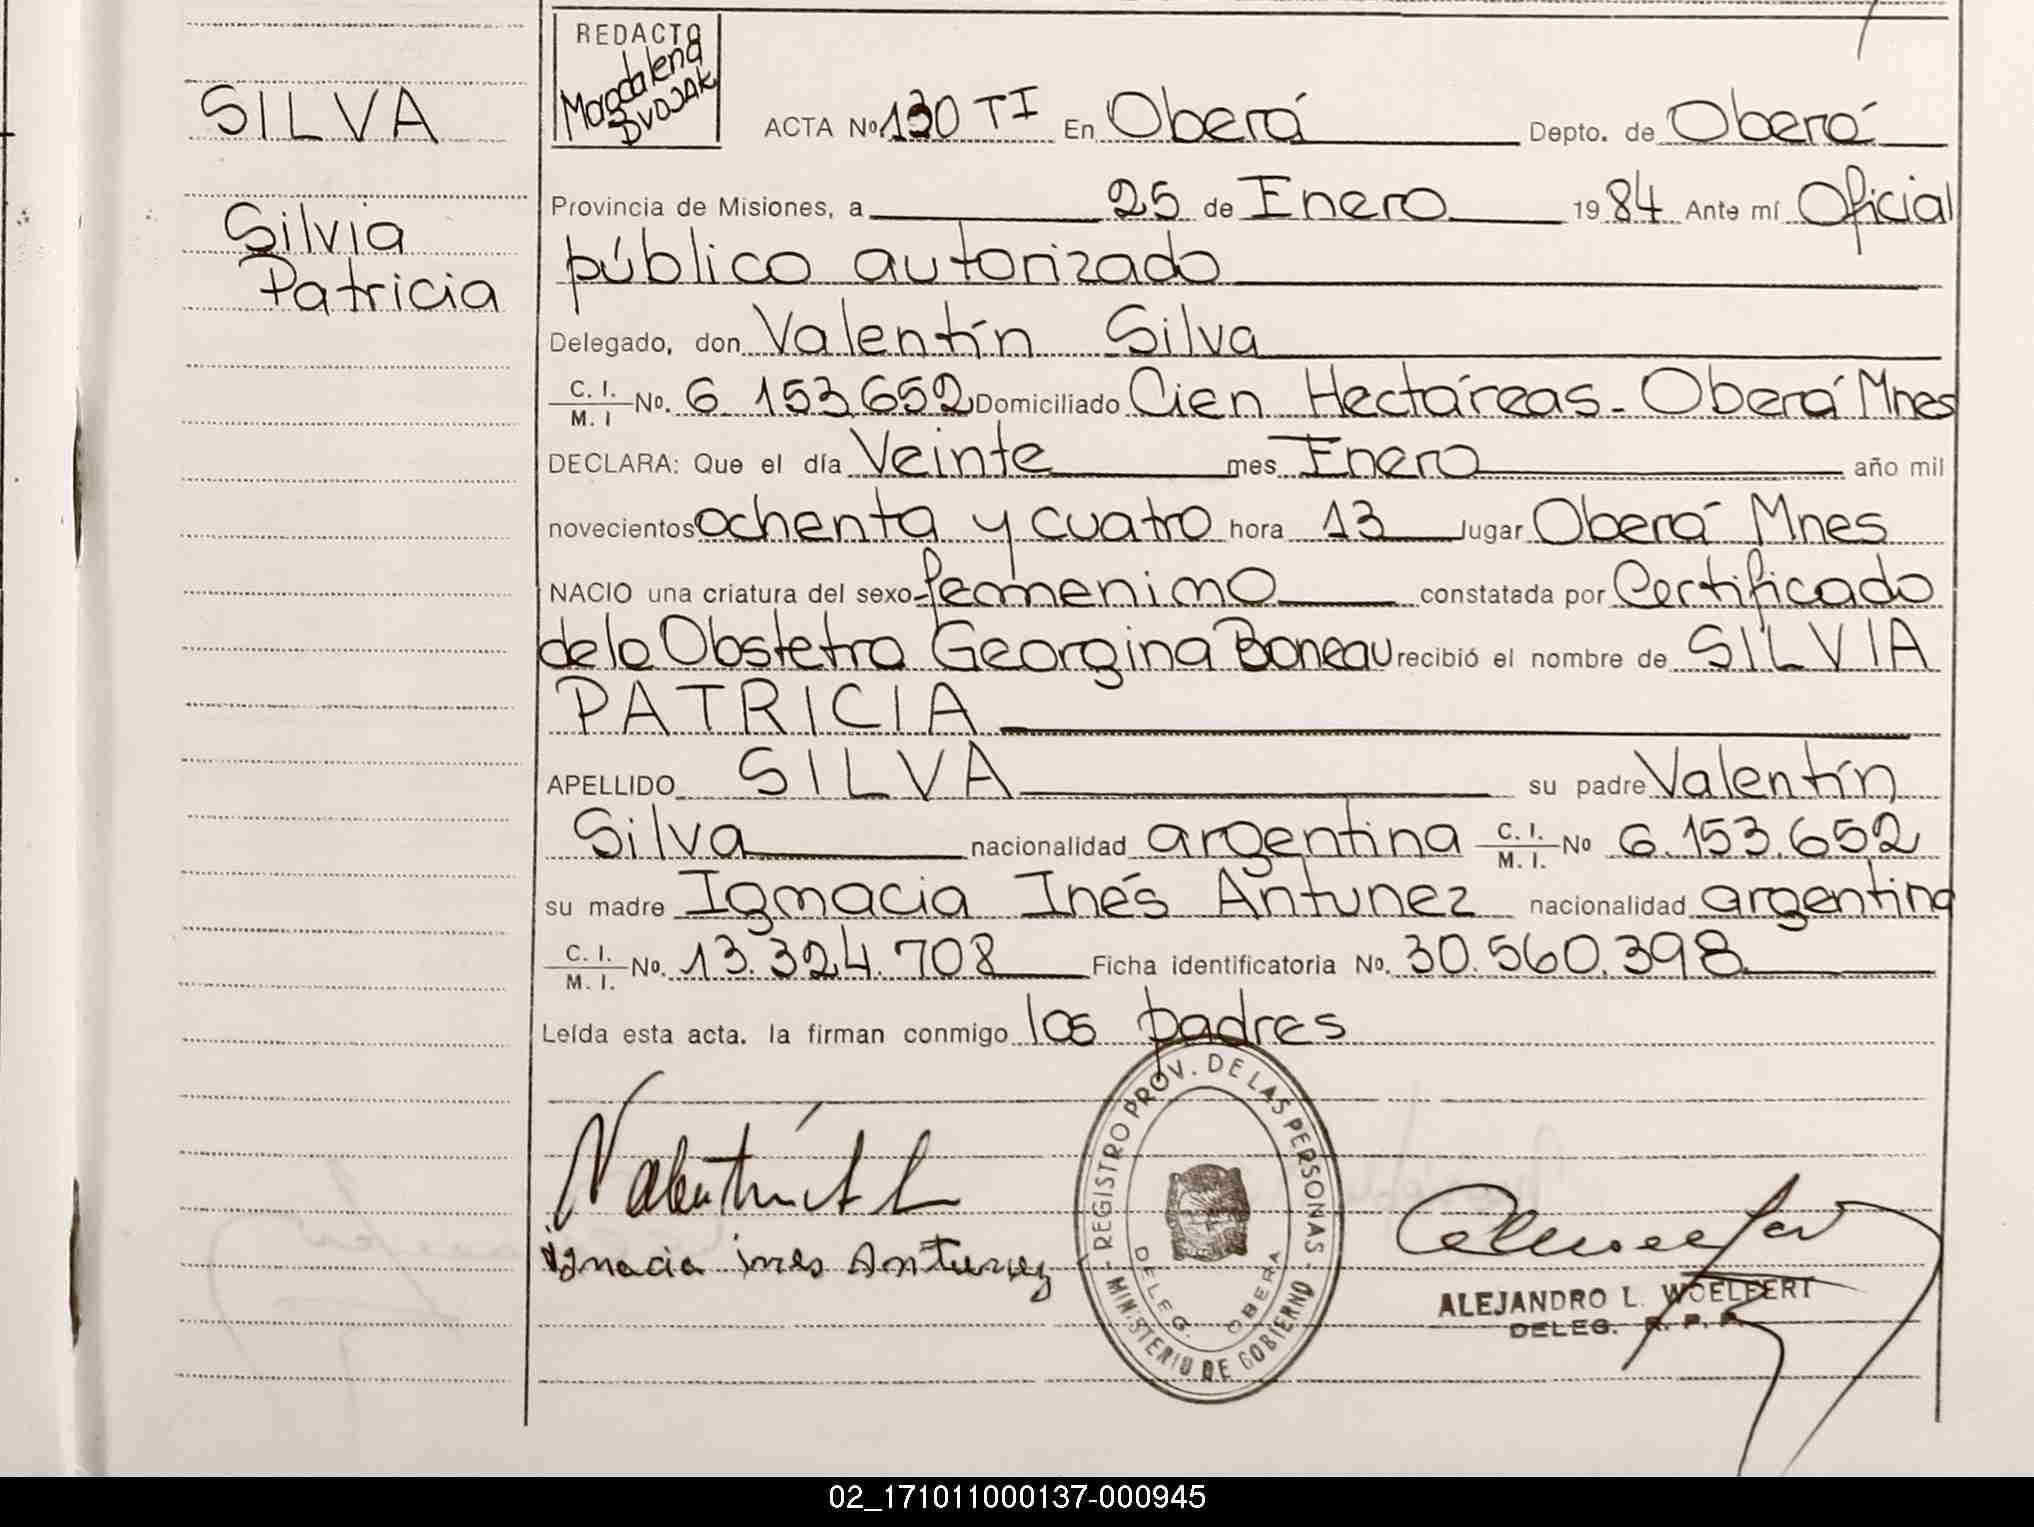 SILVA
Silvia
Patricia
REDACTO
Magdalena
DVOJAK
ACTA Nº 130 TI En Oberá Depto. de Oberá
Provincia de Misiones, a 25 de Enero 1984 Ante mí Oficial
público autorizado
Delegado, don Valentín Silva
C. I. / M. I No. 6.153.652 Domiciliado Cien Hectáreas - Oberá Mnes
DECLARA: Que el día Veinte mes Enero año mil
novecientos ochenta y cuatro hora 13 lugar Oberá Mnes
NACIO una criatura del sexo femenino constatada por Certificado
de la Obstetra Georgina Boneau recibió el nombre de SILVIA
PATRICIA
APELLIDO SILVA su padre Valentín
Silva nacionalidad argentina C. I. / M. I. Nº 6.153.652
su madre Ignacia Inés Antunez nacionalidad argentina
C. I. / M. I. No. 13.324.708 Ficha identificatoria No. 30.560.398
Leída esta acta. la firman conmigo los padres
REGISTRO PROV. DE LAS PERSONAS - MINISTERIO DE GOBIERNO -
DELEG. OBERA
Ignacia ines Antunez
ALEJANDRO L. WOELFERT
DELEG. R. P. P.
02_171011000137-000945